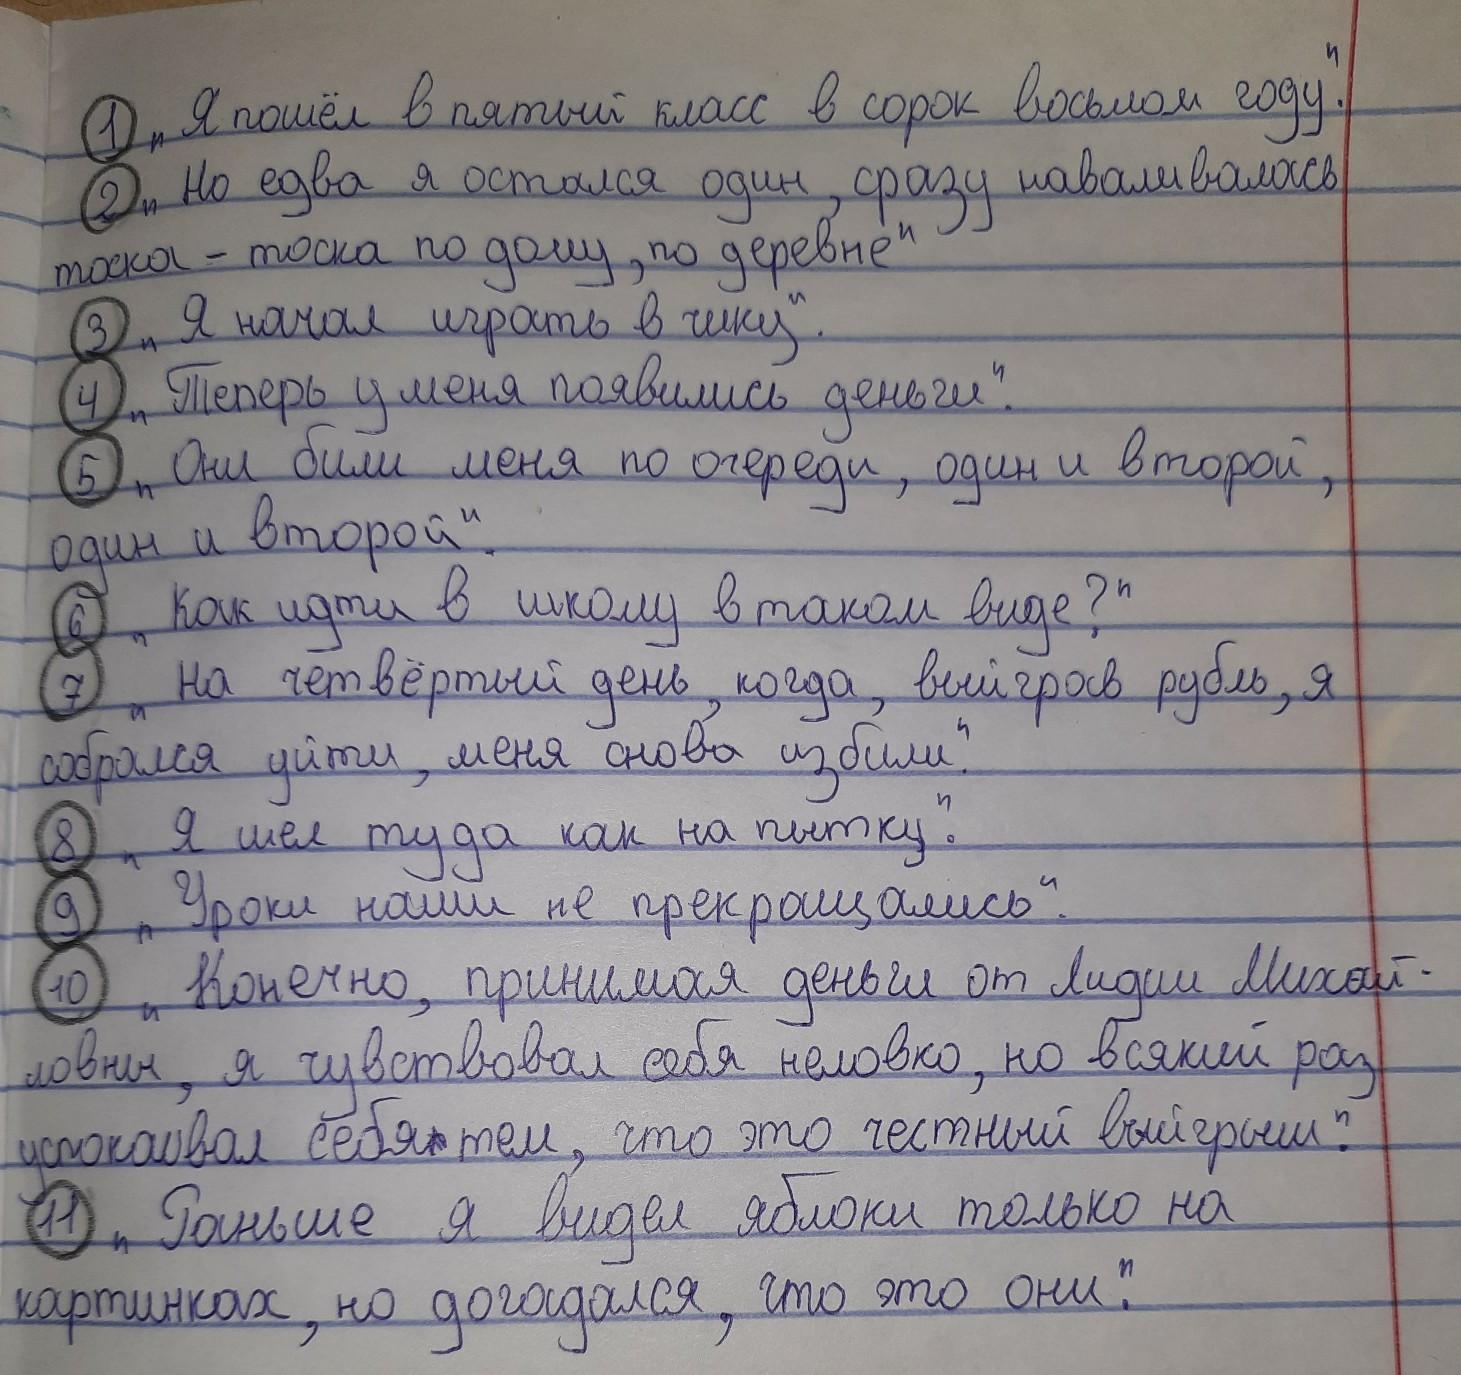 1 „Я пошёл в пятый класс в сорок восьмом году".
2 „Но едва я остался один, сразу наваливалась
тоска - тоска по дому, по деревне"
3 „Я начал играть в чику".
4 „Теперь у меня появились деньги".
5 „Они били меня по очереди, один и второй,
один и второй".
6 „Как идти в школу в таком виде?"
7 „На четвёртый день, когда, выйграв рубль, я
собрался уйти, меня снова избили".
8 „Я шел туда как на пытку".
9 „Уроки наши не прекращались".
10 „Конечно, принимая деньги от Лидии Михай-
ловны, я чувствовал себя неловко, но всякий раз
успокаивал себя тем, что это честный выйгрыш".
11 „Раньше я видел яблоки только на
картинках, но догадался, что это они".